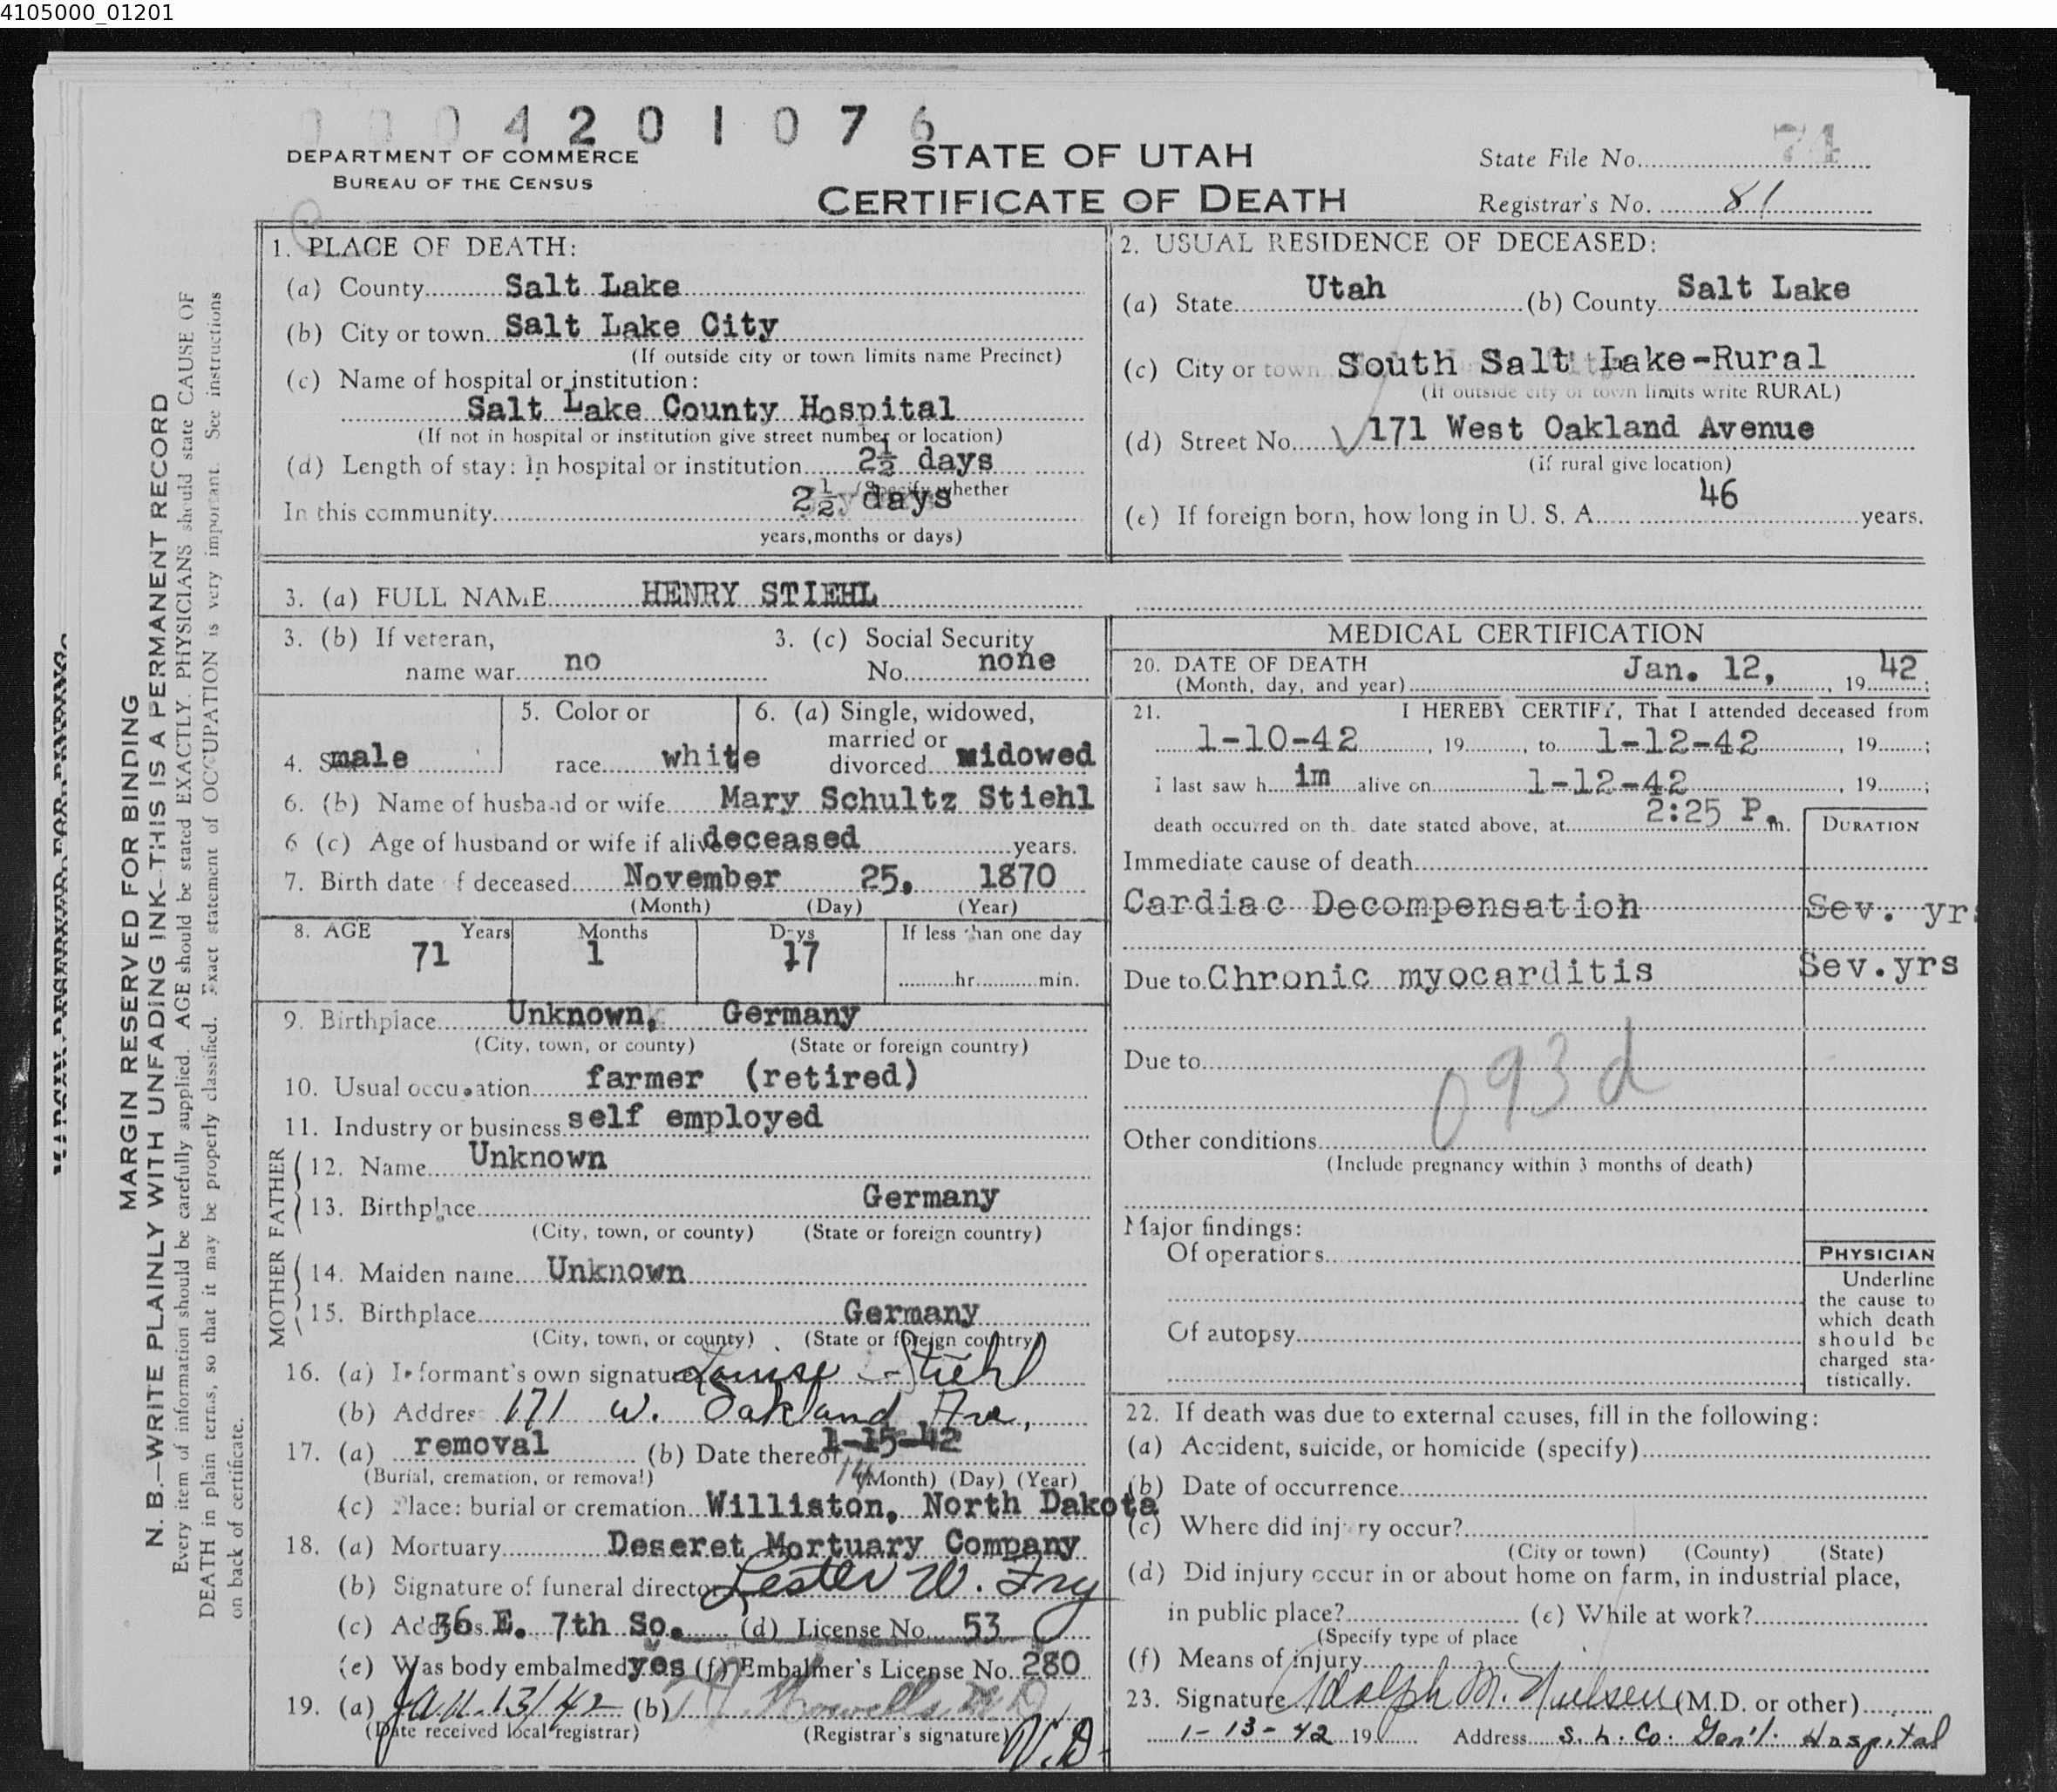 4105000_01201
0 0 0 4 2 0 1 0 7 6
DEPARTMENT OF COMMERCE
BUREAU OF THE CENSUS
STATE OF UTAH
CERTIFICATE OF DEATH
State File No. 74
Registrar's No. 81
MARGIN RESERVED FOR BINDING
N. B.—WRITE PLAINLY WITH UNFADING INK—THIS IS A PERMANENT RECORD
Every item of information should be carefully supplied. AGE should be stated EXACTLY. PHYSICIANS should state CAUSE OF
DEATH in plain terms, so that it may be properly classified. Exact statement of OCCUPATION is very important. See instructions
on back of certificate.
1. PLACE OF DEATH:
(a) County Salt Lake
(b) City or town Salt Lake City
(If outside city or town limits name Precinct)
(c) Name of hospital or institution:
Salt Lake County Hospital
(If not in hospital or institution give street number or location)
(d) Length of stay: In hospital or institution 2½ days
(Specify whether
In this community 2½ days
years, months or days)
2. USUAL RESIDENCE OF DECEASED:
(a) State Utah (b) County Salt Lake
(c) City or town South Salt Lake-Rural
(If outside city or town limits write RURAL)
(d) Street No. 171 West Oakland Avenue
(if rural give location)
(e) If foreign born, how long in U. S. A. 46 years.
3. (a) FULL NAME HENRY STIEHL
3. (b) If veteran, name war no
3. (c) Social Security No. none
4. Sex male
5. Color or race white
6. (a) Single, widowed, married or divorced widowed
6. (b) Name of husband or wife Mary Schultz Stiehl
6 (c) Age of husband or wife if alive deceased years.
7. Birth date of deceased November 25, 1870
(Month) (Day) (Year)
8. AGE Years Months Days If less than one day
71 1 17 hr. min.
9. Birthplace Unknown, Germany
(City, town, or county) (State or foreign country)
10. Usual occupation farmer (retired)
11. Industry or business self employed
FATHER
12. Name Unknown
13. Birthplace Germany
(City, town, or county) (State or foreign country)
MOTHER
14. Maiden name Unknown
15. Birthplace Germany
(City, town, or county) (State or foreign country)
16. (a) Informant's own signature Louise Stiehl
(b) Address 171 W. Oakland Ave,
17. (a) removal (b) Date thereof 1-15-42
14
(Burial, cremation, or removal) (Month) (Day) (Year)
(c) Place: burial or cremation Williston, North Dakota
18. (a) Mortuary Deseret Mortuary Company
(b) Signature of funeral director Lester W. Fry
(c) Address 36 E. 7th So. (d) License No. 53
(e) Was body embalmed yes (f) Embalmer's License No. 280
19. (a) Jan. 13/42 (b)
(Date received local registrar) (Registrar's signature)
MEDICAL CERTIFICATION
20. DATE OF DEATH Jan. 12, 1942;
(Month, day, and year)
21. I HEREBY CERTIFY, That I attended deceased from
1-10-42, 19, to 1-12-42, 19;
I last saw him alive on 1-12-42, 19;
death occurred on the date stated above, at 2:25 P. m.
DURATION
Immediate cause of death
Cardiac Decompensation Sev. yrs
Due to Chronic myocarditis Sev. yrs
Due to
093d
Other conditions
(Include pregnancy within 3 months of death)
Major findings:
Of operations
Of autopsy
PHYSICIAN
Underline
the cause to
which death
should be
charged sta-
tistically.
22. If death was due to external causes, fill in the following:
(a) Accident, suicide, or homicide (specify)
(b) Date of occurrence
(c) Where did injury occur?
(City or town) (County) (State)
(d) Did injury occur in or about home on farm, in industrial place,
in public place? (e) While at work?
(Specify type of place
(f) Means of injury
23. Signature Adolph M. Nielsen (M.D. or other)
1-13-42 19 Address S. L. Co. Gen'l. Hospital